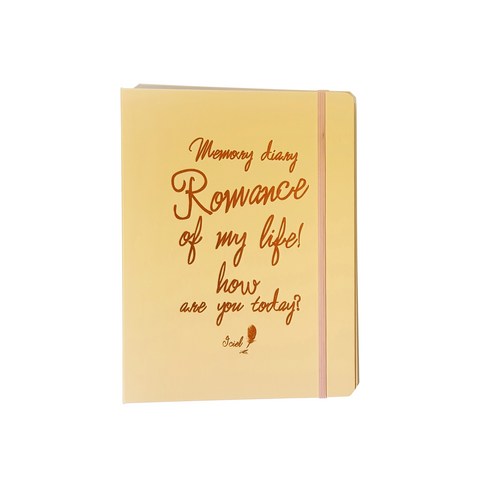 Memory diary
Romance
of my life!
how
are you today?